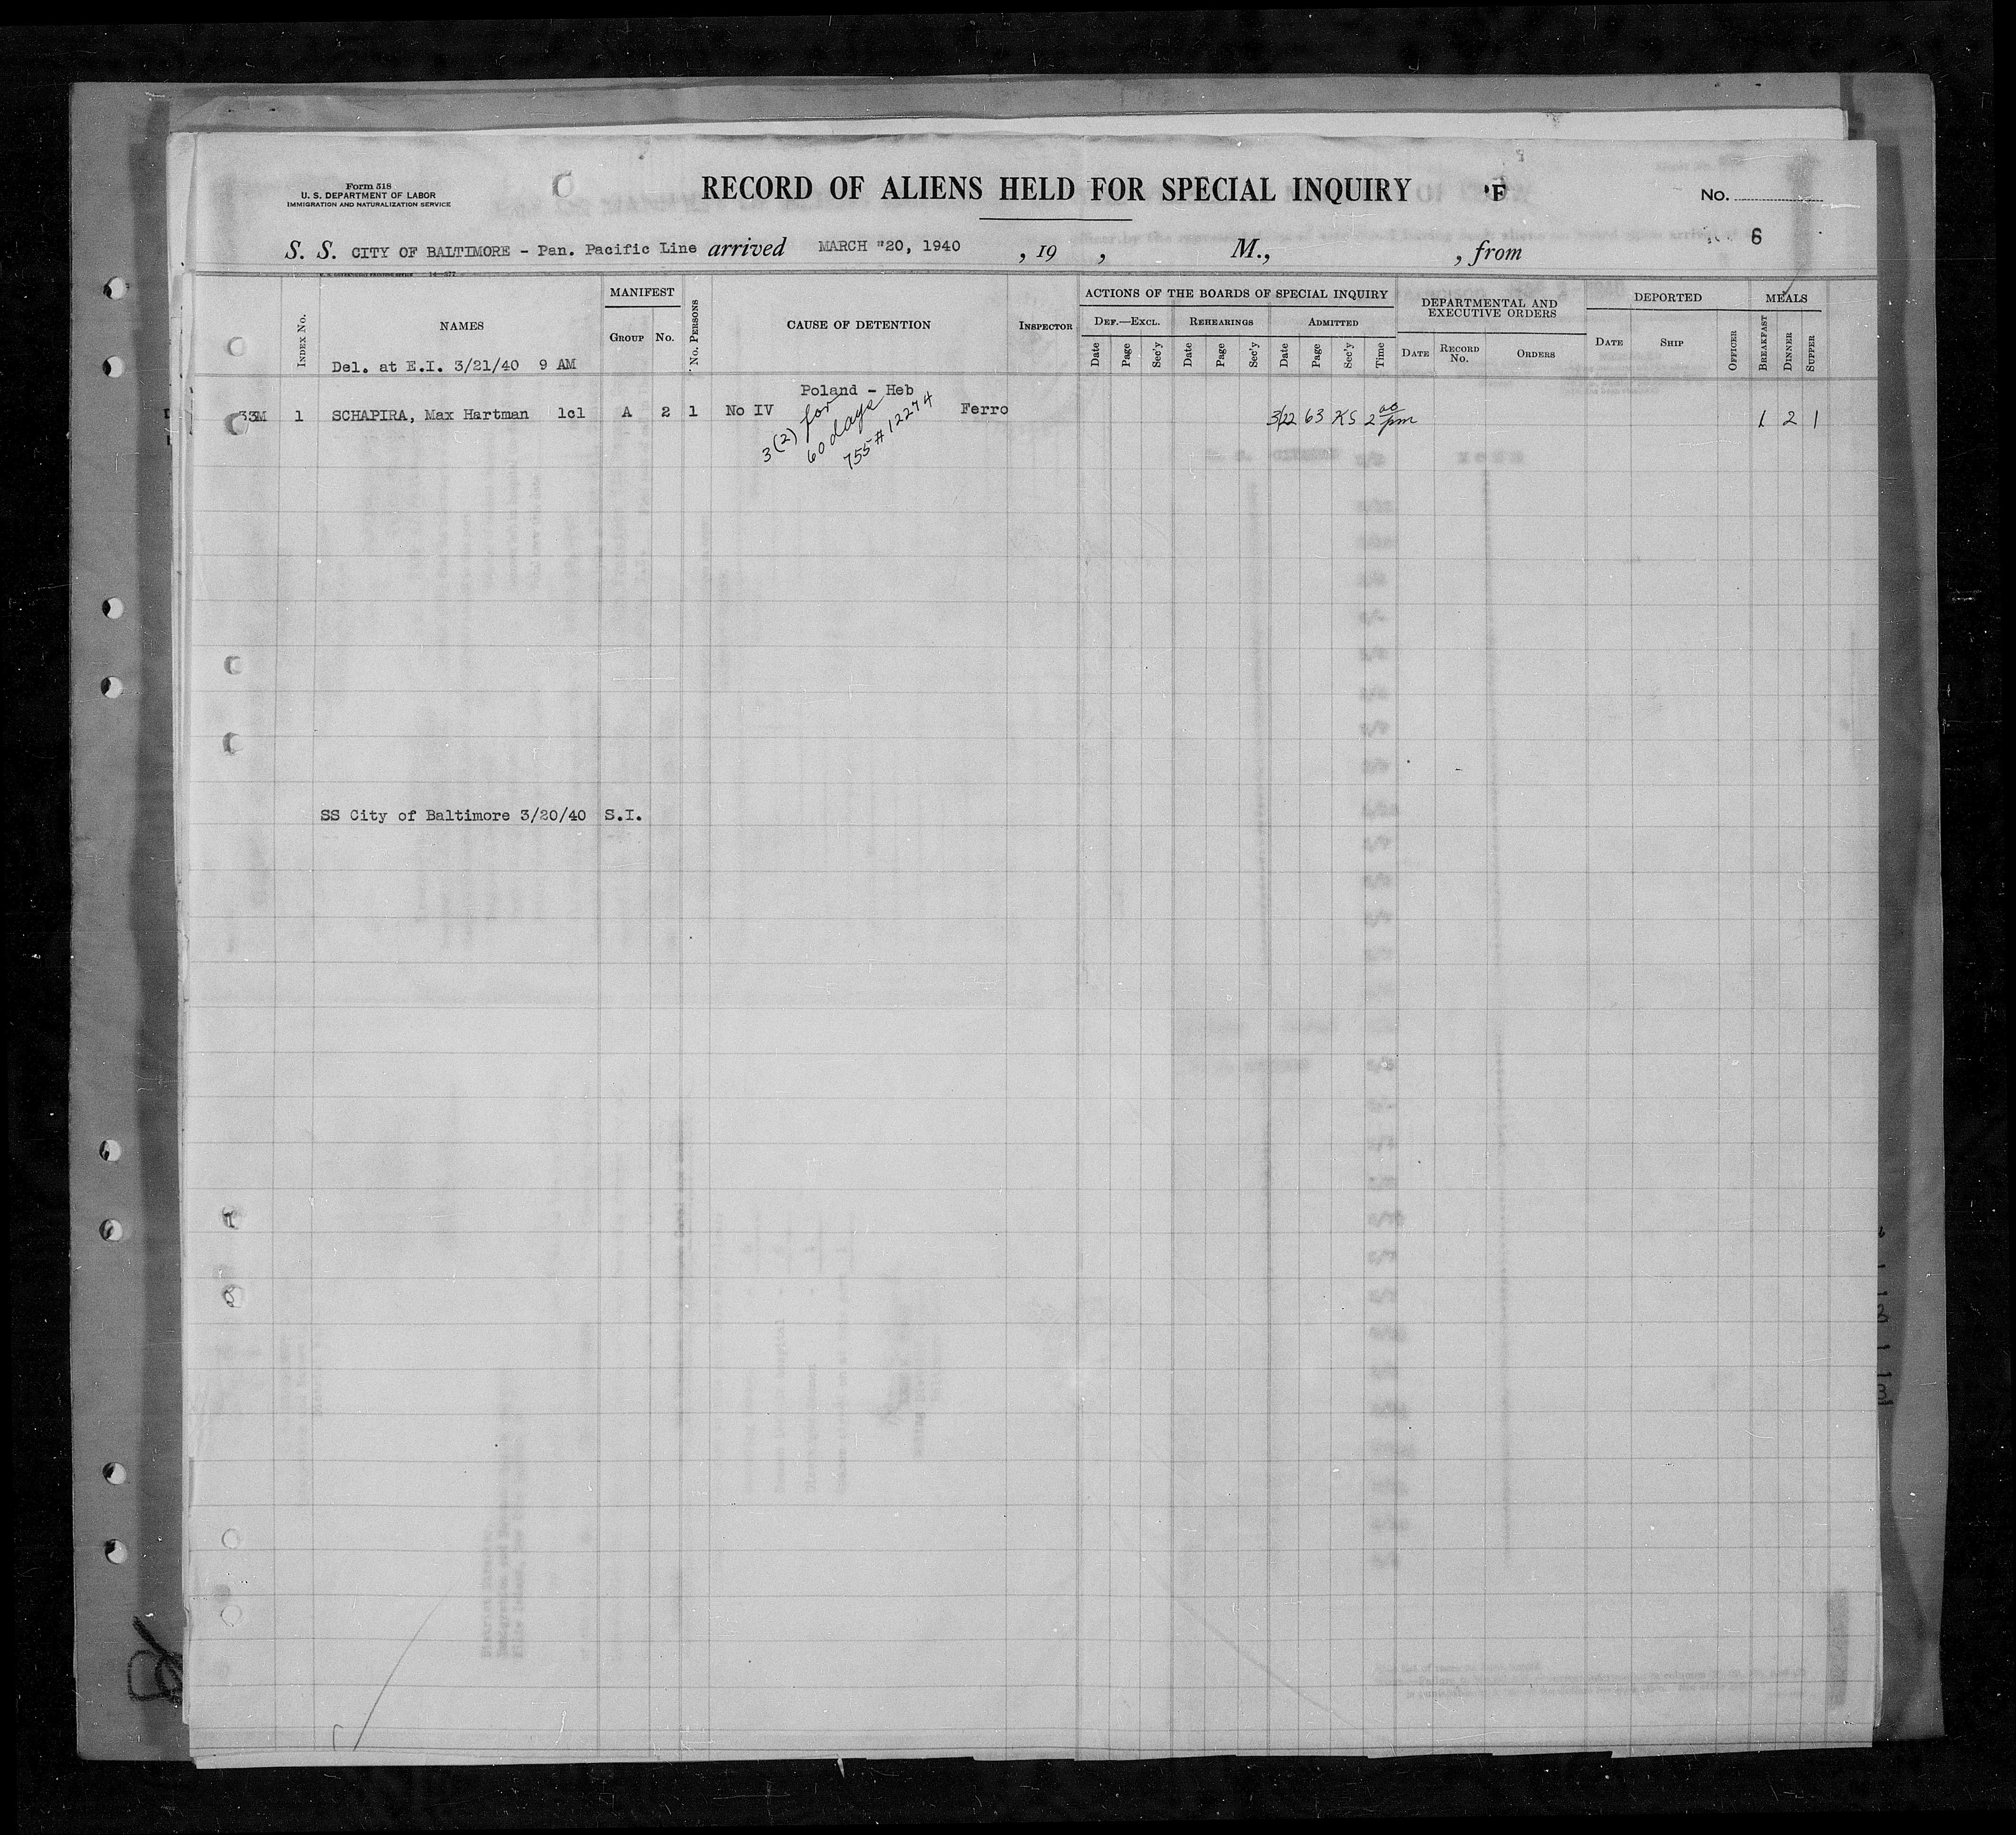 Form 518
U. S. DEPARTMENT OF LABOR
IMMIGRATION AND NATURALIZATION SERVICE
RECORD OF ALIENS HELD FOR SPECIAL INQUIRY F
No.
S. S. CITY OF BALTIMORE - Pan. Pacific Line arrived MARCH "20, 1940 , 19 , M., , from
6
INDEX No.
NAMES
MANIFEST
GROUP No.
No. PERSONS
CAUSE OF DETENTION
INSPECTOR
ACTIONS OF THE BOARDS OF SPECIAL INQUIRY
DEF.—EXCL. REHEARINGS ADMITTED
Date Page Sec'y Date Page Sec'y Date Page Sec'y Time
DEPARTMENTAL AND
EXECUTIVE ORDERS
DATE RECORD No. ORDERS
DEPORTED
DATE SHIP OFFICER
MEALS
BREAKFAST DINNER SUPPER
Del. at E.I. 3/21/40 9 AM
Poland - Heb
33M 1 SCHAPIRA, Max Hartman 1cl A 2 1 No IV Ferro 3/22 63 KS 2 00 pm 1 2 1
3(2) for
60 days
755#12274
SS City of Baltimore 3/20/40 S.I.